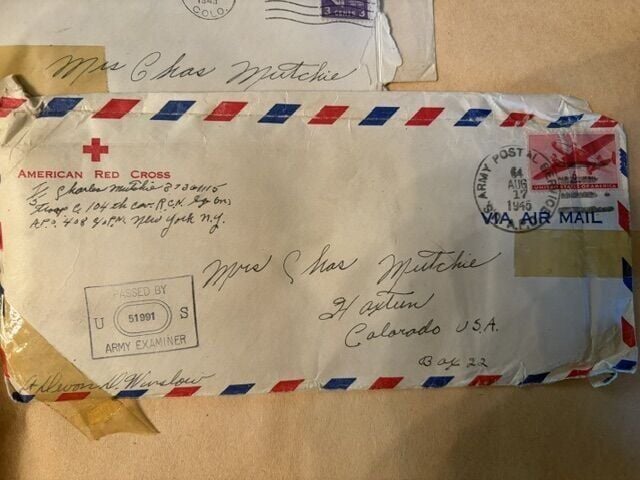 1945
COLO.
3 CENTS 3
Mrs Chas Mutchie
AMERICAN RED CROSS
Charles Mutchie 37341115
Troop C, 104 th cav. R.C.N. Sqdn,
A.P.O. 408 % P.M. New York N.Y.
U.S. ARMY POSTAL SERVICE
AUG
17
1945
A.P.O.
UNITED STATES OF AMERICA
VIA AIR MAIL
Mrs Chas Mutchie
Haxtun
Colorado U.S.A.
Box 22
PASSED BY
U 51991 S
ARMY EXAMINER
Devon D. Winslow